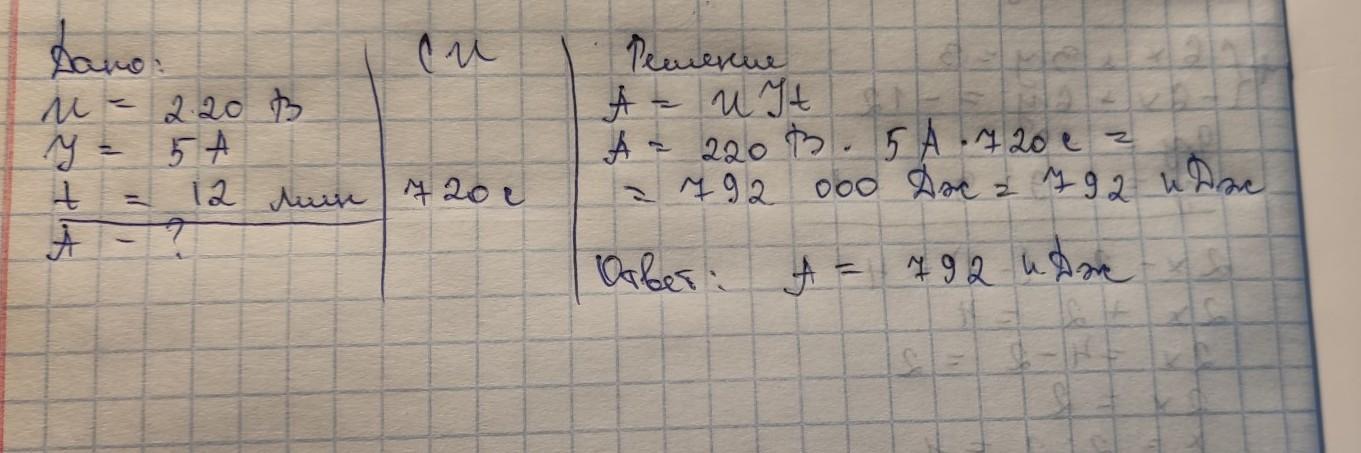 Дано:
U = 220 В
I = 5 А
t = 12 мин
A - ?
СИ
720 с
Решение
A = UIt
A = 220 В · 5 А · 720 с =
= 792 000 Дж = 792 кДж
Ответ: A = 792 кДж